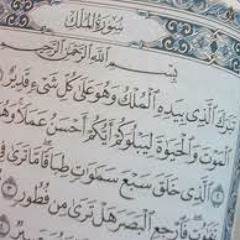 سُورَةُ الْمُلْكِ
بِسْمِ اللَّهِ الرَّحْمَٰنِ الرَّحِيمِ
تَبَارَكَ الَّذِي بِيَدِهِ الْمُلْكُ وَهُوَ عَلَىٰ كُلِّ شَيْءٍ قَدِيرٌ
الْمَوْتَ وَالْحَيَاةَ لِيَبْلُوَكُمْ أَيُّكُمْ أَحْسَنُ عَمَلًا وَهُوَ
الَّذِي خَلَقَ سَبْعَ سَمَاوَاتٍ طِبَاقًا مَّا تَرَىٰ فِي
تَفَاوُتٍ فَارْجِعِ الْبَصَرَ هَلْ تَرَىٰ مِن فُطُورٍ